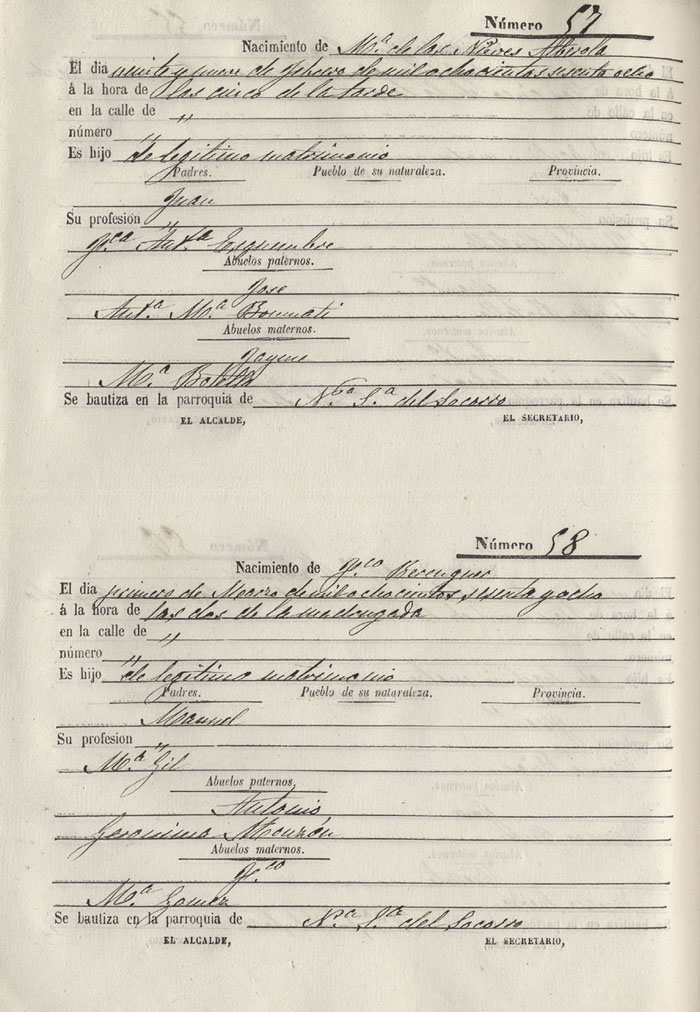 Número 57
Nacimiento de Mª de las Nieves Alberola
El dia veinte y nueve de febrero de mil ochocientos sesenta ocho
á la hora de las cinco de la tarde
en la calle de "
número "
Es hijo de legitimo matrimonio
Padres. Pueblo de su naturaleza. Provincia.
Juan
Su profesión "
Fca Anta
Abuelos paternos.
Jose
Anta Mª Bonmati
Abuelos maternos.
Jayme
Mª Botella
Se bautiza en la parroquia de Nª Sª del Socorro
EL ALCALDE, EL SECRETARIO,
Número 58
Nacimiento de Fco Berenguer
El dia primero de Marzo de mil ochocientos sesenta y ocho
á la hora de las dos de la madrugada
en la calle de "
número "
Es hijo de legitimo matrimonio
Padres. Pueblo de su naturaleza. Provincia.
Manuel
Su profesion "
Mª Gil
Abuelos paternos,
Antonio
Geronima Monzón
Abuelos maternos.
Fco
Mª Gomez
Se bautiza en la parroquia de Nª Sª del Socorro
EL ALCALDE, EL SECRETARIO,